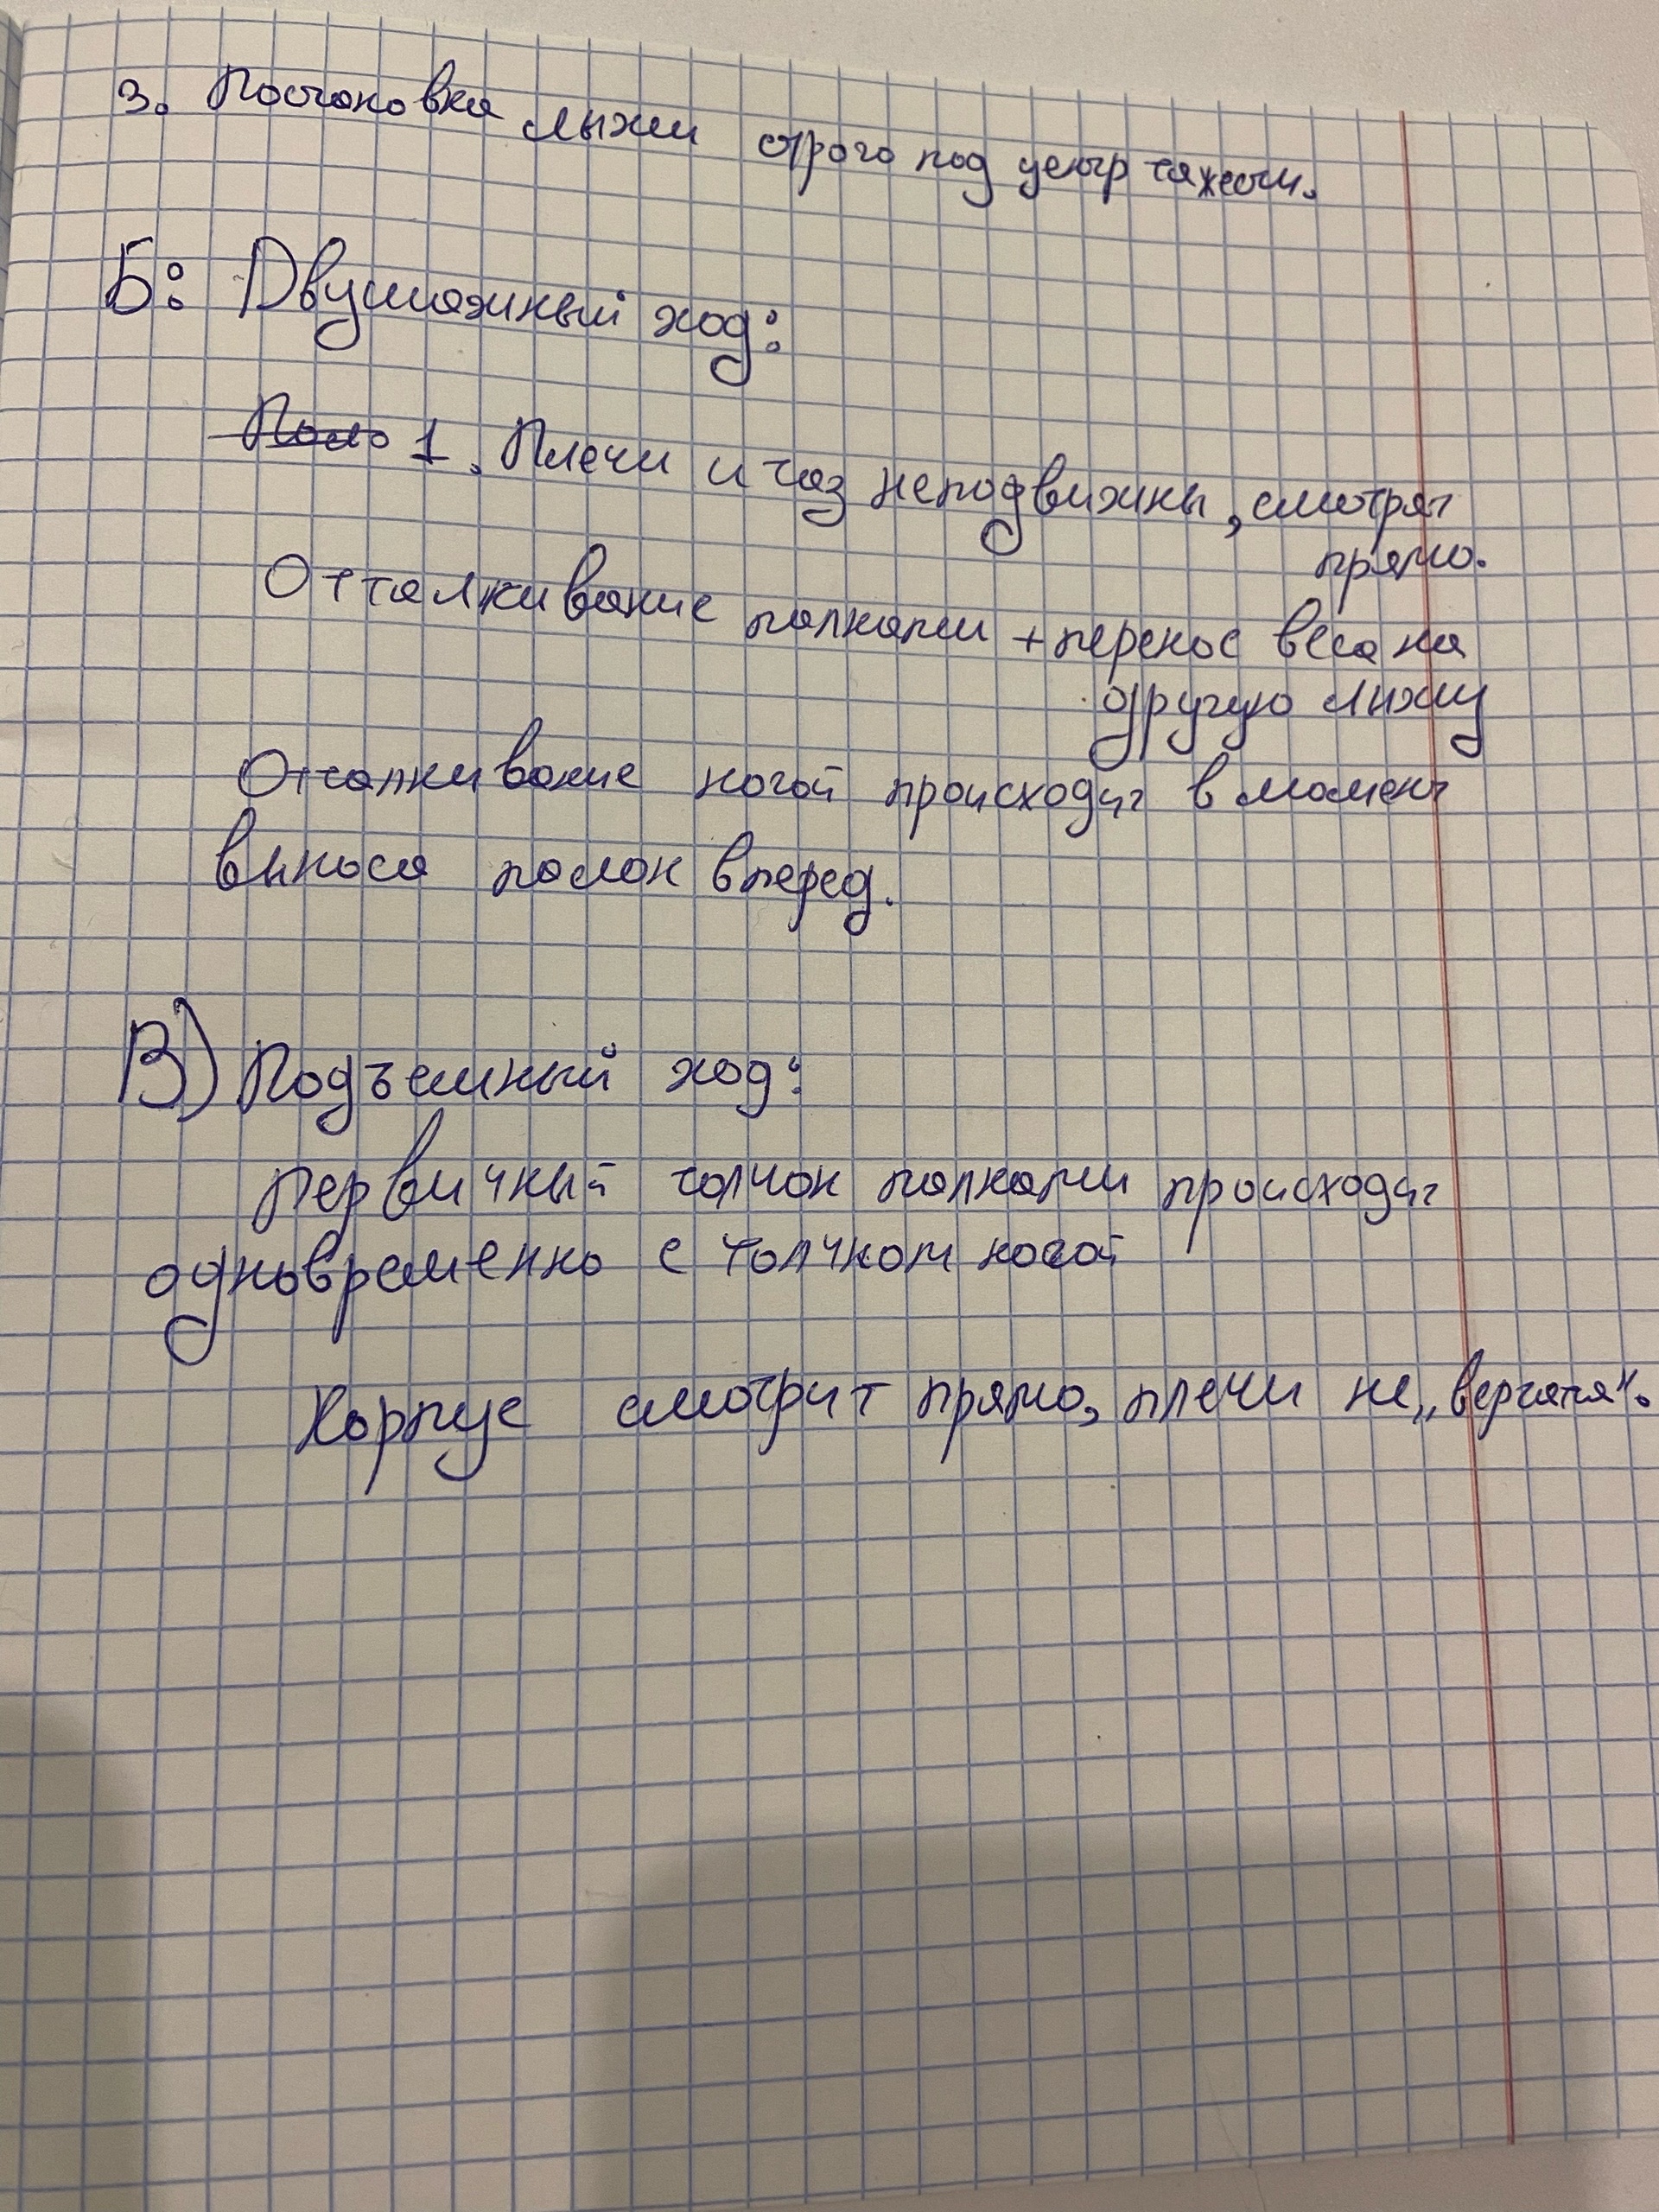 3. Постановка лыжи строго под центр тяжести.
Б: Двушажный ход:
1. Плечи и таз неподвижны, смотрят
прямо.
Отталкивание палками + перенос веса на
другую лыжу
Отталкивание ногой происходит в момент
выноса палок вперед.
В) Подъемный ход:
первичный толчок палками происходит
одновременно с толчком ногой
Корпус смотрит прямо, плечи не „вертятся“.